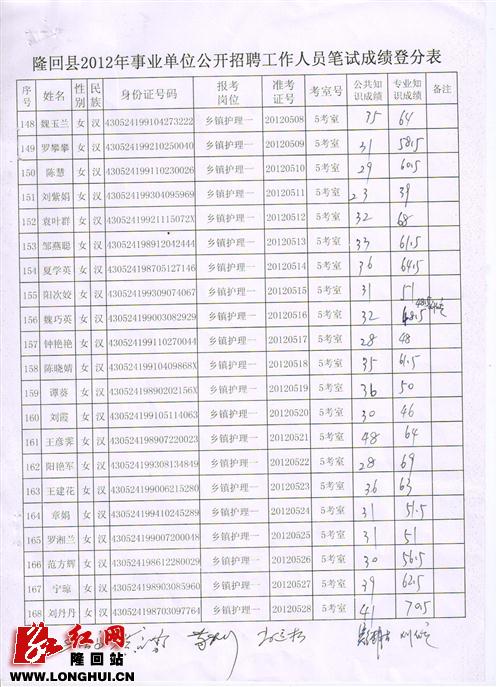 隆回县2012年事业单位公开招聘工作人员笔试成绩登分表
序号 姓名 性别 民族 身份证号码 报考岗位 准考证号 考室号 公共知识成绩 专业知识成绩 备注
148 魏玉兰 女 汉 430524199104273222 乡镇护理一 20120508 5考室 35 64
149 罗攀攀 女 汉 430524199210250040 乡镇护理一 20120509 5考室 31 58.5
150 陈慧 女 汉 430524199110230026 乡镇护理一 20120510 5考室 29 60.5
151 刘紫娟 女 汉 430524199304095969 乡镇护理一 20120511 5考室 23 39
152 袁叶群 女 汉 43052419921115072X 乡镇护理一 20120512 5考室 32 68
153 邹燕聪 女 汉 430524198912042444 乡镇护理一 20120513 5考室 33 61.5
154 夏学英 女 汉 430524198705127146 乡镇护理一 20120514 5考室 36 64.5
155 阳次姣 女 汉 430524199309074067 乡镇护理一 20120515 5考室 31 51
156 魏巧英 女 汉 430524199003082929 乡镇护理一 20120516 5考室 32 68.5
157 钟艳艳 女 汉 430524199110270044 乡镇护理一 20120517 5考室 28 48
158 陈晓婧 女 汉 43052419910409868X 乡镇护理一 20120518 5考室 35 61.5
159 谭葵 女 汉 43052419890202156X 乡镇护理一 20120519 5考室 36 50
160 刘霞 女 汉 430524199105114063 乡镇护理一 20120520 5考室 30 46
161 王彦霁 女 汉 430524198907220023 乡镇护理一 20120521 5考室 48 64
162 阳艳军 女 汉 430524199308134849 乡镇护理一 20120522 5考室 28 69
163 王建花 女 汉 430524199006215280 乡镇护理一 20120523 5考室 36 63
164 章娟 女 汉 430524199410245289 乡镇护理一 20120524 5考室 31 51.5
165 罗湘兰 女 汉 430524199007200048 乡镇护理一 20120525 5考室 31 51
166 范方辉 女 汉 430524198612280029 乡镇护理一 20120526 5考室 30 56.5
167 宁琼 女 汉 430524198903085960 乡镇护理一 20120527 5考室 39 62.5
168 刘丹丹 女 汉 430524198703097764 乡镇护理一 20120528 5考室 41 70.5
红网
隆回站
WWW.LONGHUI.CN